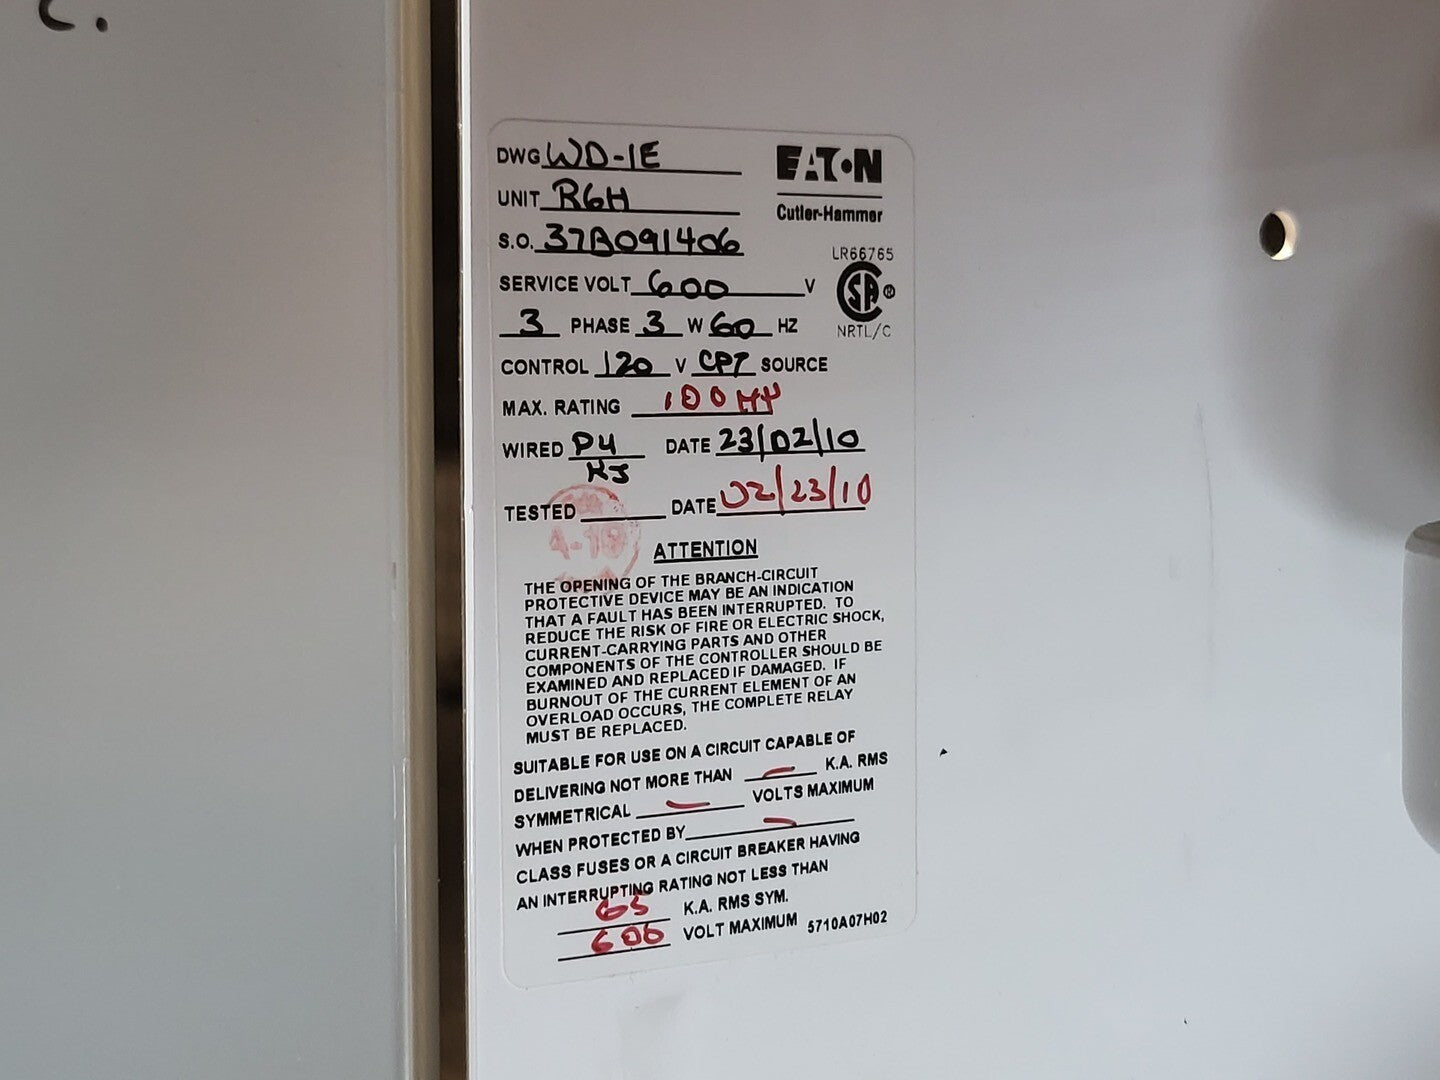 DWG WD-1E
EATON
Cutler-Hammer
UNIT R6H
S.O. 37B091406
LR66765
SA ®
NRTL/C
SERVICE VOLT 600 V
3 PHASE 3 W 60 HZ
CONTROL 120 V CPT SOURCE
MAX. RATING 100 HP
WIRED P4 DATE 23/02/10
KJ
TESTED DATE 02/23/10
ATTENTION
THE OPENING OF THE BRANCH-CIRCUIT
PROTECTIVE DEVICE MAY BE AN INDICATION
THAT A FAULT HAS BEEN INTERRUPTED. TO
REDUCE THE RISK OF FIRE OR ELECTRIC SHOCK,
CURRENT-CARRYING PARTS AND OTHER
COMPONENTS OF THE CONTROLLER SHOULD BE
EXAMINED AND REPLACED IF DAMAGED. IF
BURNOUT OF THE CURRENT ELEMENT OF AN
OVERLOAD OCCURS, THE COMPLETE RELAY
MUST BE REPLACED.
SUITABLE FOR USE ON A CIRCUIT CAPABLE OF
DELIVERING NOT MORE THAN — K.A. RMS
SYMMETRICAL — VOLTS MAXIMUM
WHEN PROTECTED BY —
CLASS FUSES OR A CIRCUIT BREAKER HAVING
AN INTERRUPTING RATING NOT LESS THAN
65 K.A. RMS SYM.
600 VOLT MAXIMUM 5710A07H02